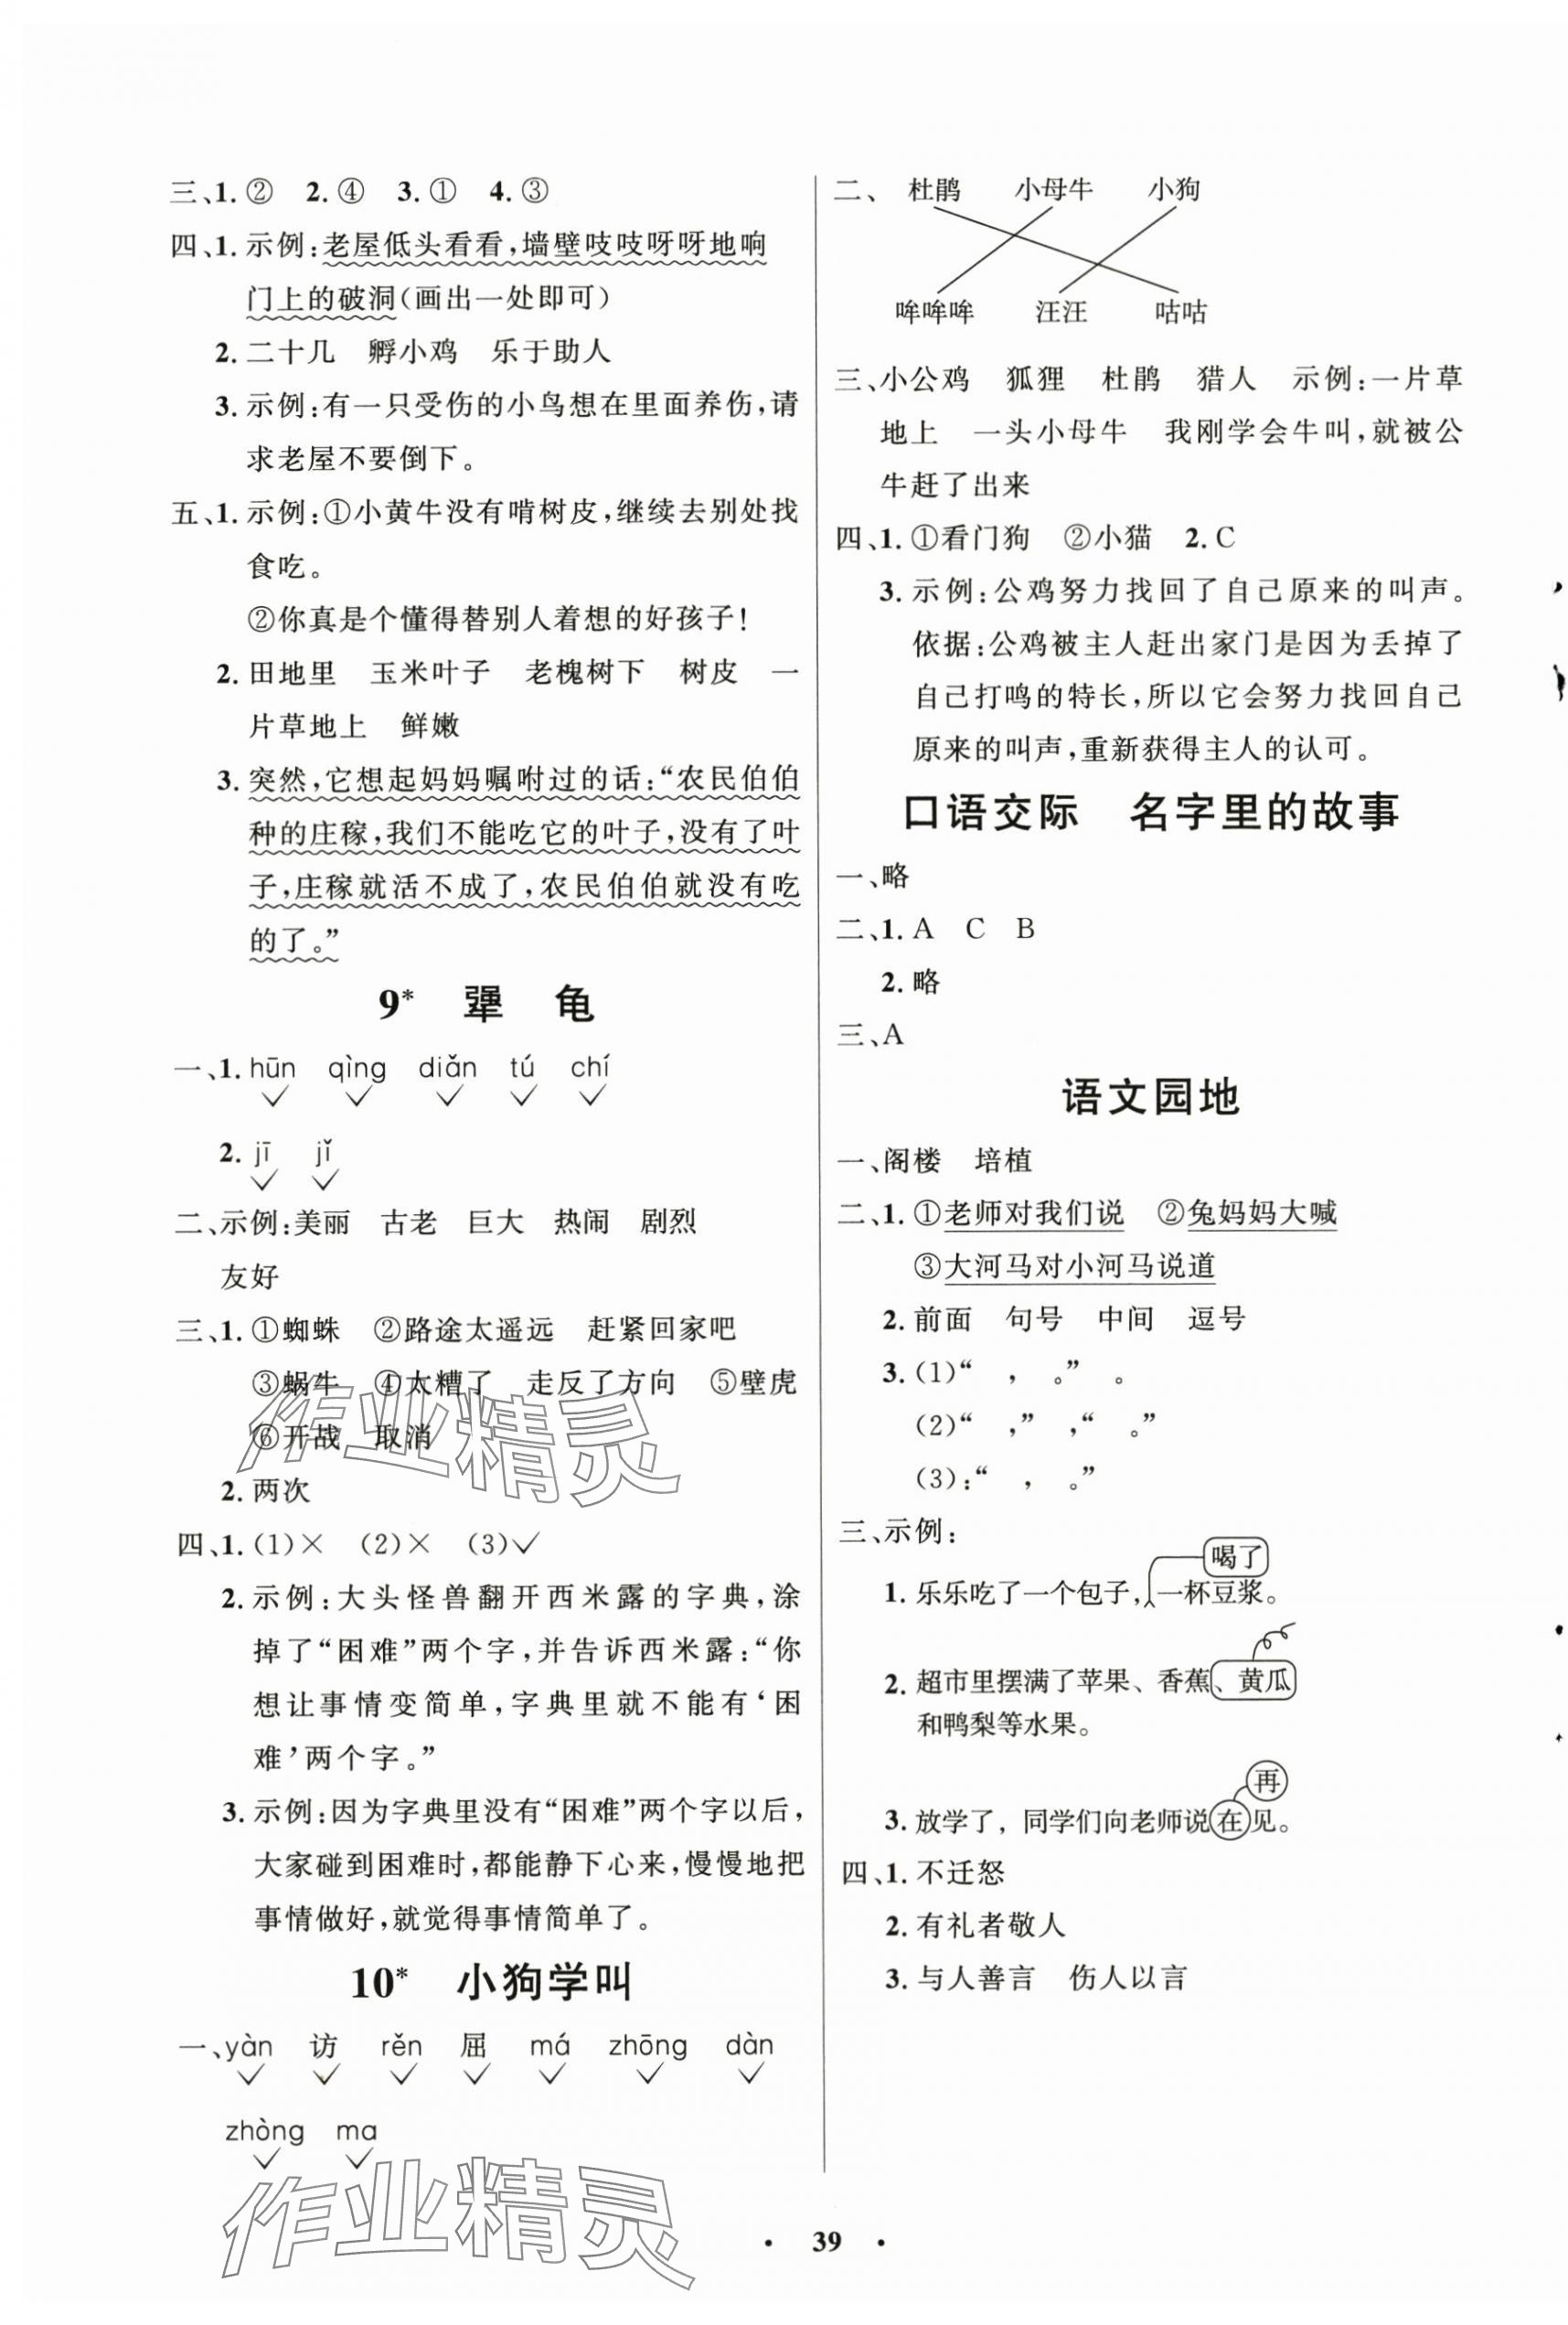 三、1.② 2.④ 3.① 4.③
四、1.示例:老屋低头看看,墙壁吱吱呀呀地响
门上的破洞(画出一处即可)
2.二十几 孵小鸡 乐于助人
3.示例:有一只受伤的小鸟想在里面养伤,请
求老屋不要倒下。
五、1.示例:①小黄牛没有啃树皮,继续去别处找
食吃。
②你真是个懂得替别人着想的好孩子!
2.田地里 玉米叶子 老槐树下 树皮 一
片草地上 鲜嫩
3.突然,它想起妈妈嘱咐过的话:“农民伯伯
种的庄稼,我们不能吃它的叶子,没有了叶
子,庄稼就活不成了,农民伯伯就没有吃
的了。”
9* 犟 龟
一、1.hūn qìng diǎn tú chí
2.jī jǐ
二、示例:美丽 古老 巨大 热闹 剧烈
友好
三、1.①蜘蛛 ②路途太遥远 赶紧回家吧
③蜗牛 ④太糟了 走反了方向 ⑤壁虎
⑥开战 取消
2.两次
四、1.(1)× (2)× (3)✓
2.示例:大头怪兽翻开西米露的字典,涂
掉了“困难”两个字,并告诉西米露:“你
想让事情变简单,字典里就不能有‘困
难’两个字。”
3.示例:因为字典里没有“困难”两个字以后,
大家碰到困难时,都能静下心来,慢慢地把
事情做好,就觉得事情简单了。
10* 小狗学叫
一、yàn 访 rěn 屈 má zhōng dàn
zhòng ma
二、 杜鹃 小母牛 小狗
哞哞哞 汪汪 咕咕
三、小公鸡 狐狸 杜鹃 猎人 示例:一片草
地上 一头小母牛 我刚学会牛叫,就被公
牛赶了出来
四、1.①看门狗 ②小猫 2.C
3.示例:公鸡努力找回了自己原来的叫声。
依据:公鸡被主人赶出家门是因为丢掉了
自己打鸣的特长,所以它会努力找回自己
原来的叫声,重新获得主人的认可。
口语交际 名字里的故事
一、略
二、1.A C B
2.略
三、A
语文园地
一、阁楼 培植
二、1.①老师对我们说 ②兔妈妈大喊
③大河马对小河马说道
2.前面 句号 中间 逗号
3.(1)“ , 。” 。
(2)“ ,” ,“ 。”
(3):“ , 。”
三、示例:
喝了
1.乐乐吃了一个包子,一杯豆浆。
2.超市里摆满了苹果、香蕉、黄瓜
和鸭梨等水果。
再
3.放学了,同学们向老师说在见。
四、1.不迁怒
2.有礼者敬人
3.与人善言 伤人以言
作业精灵
作业精灵
· 39 ·